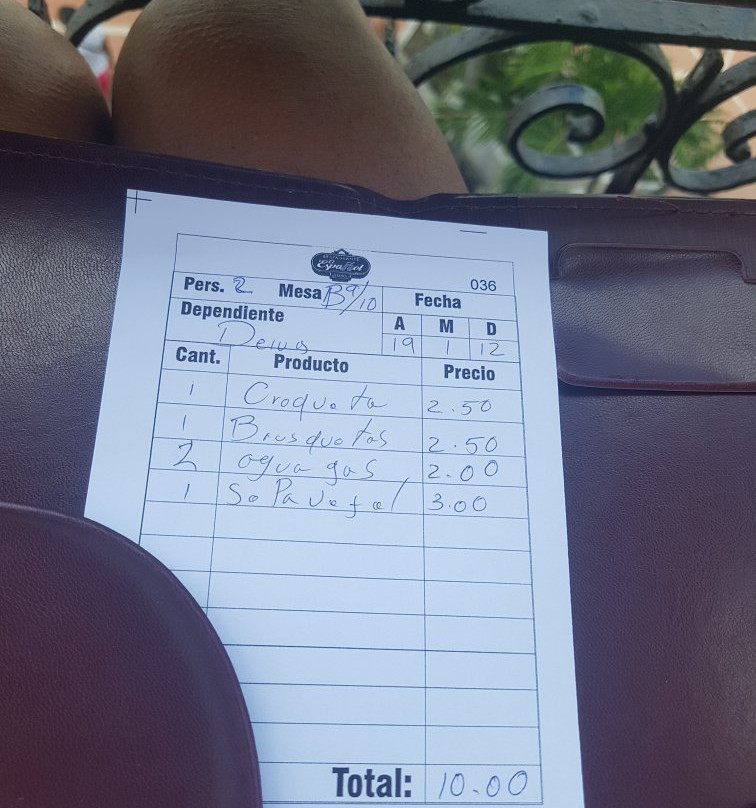 Español
036
Pers. 2 Mesa B9/10 Fecha
Dependiente A M D
19 1 12
Cant. Producto Precio
1 Croqueta 2.50
1 Brusquetas 2.50
2 agua gas 2.00
1 3.00
Total: 10.00